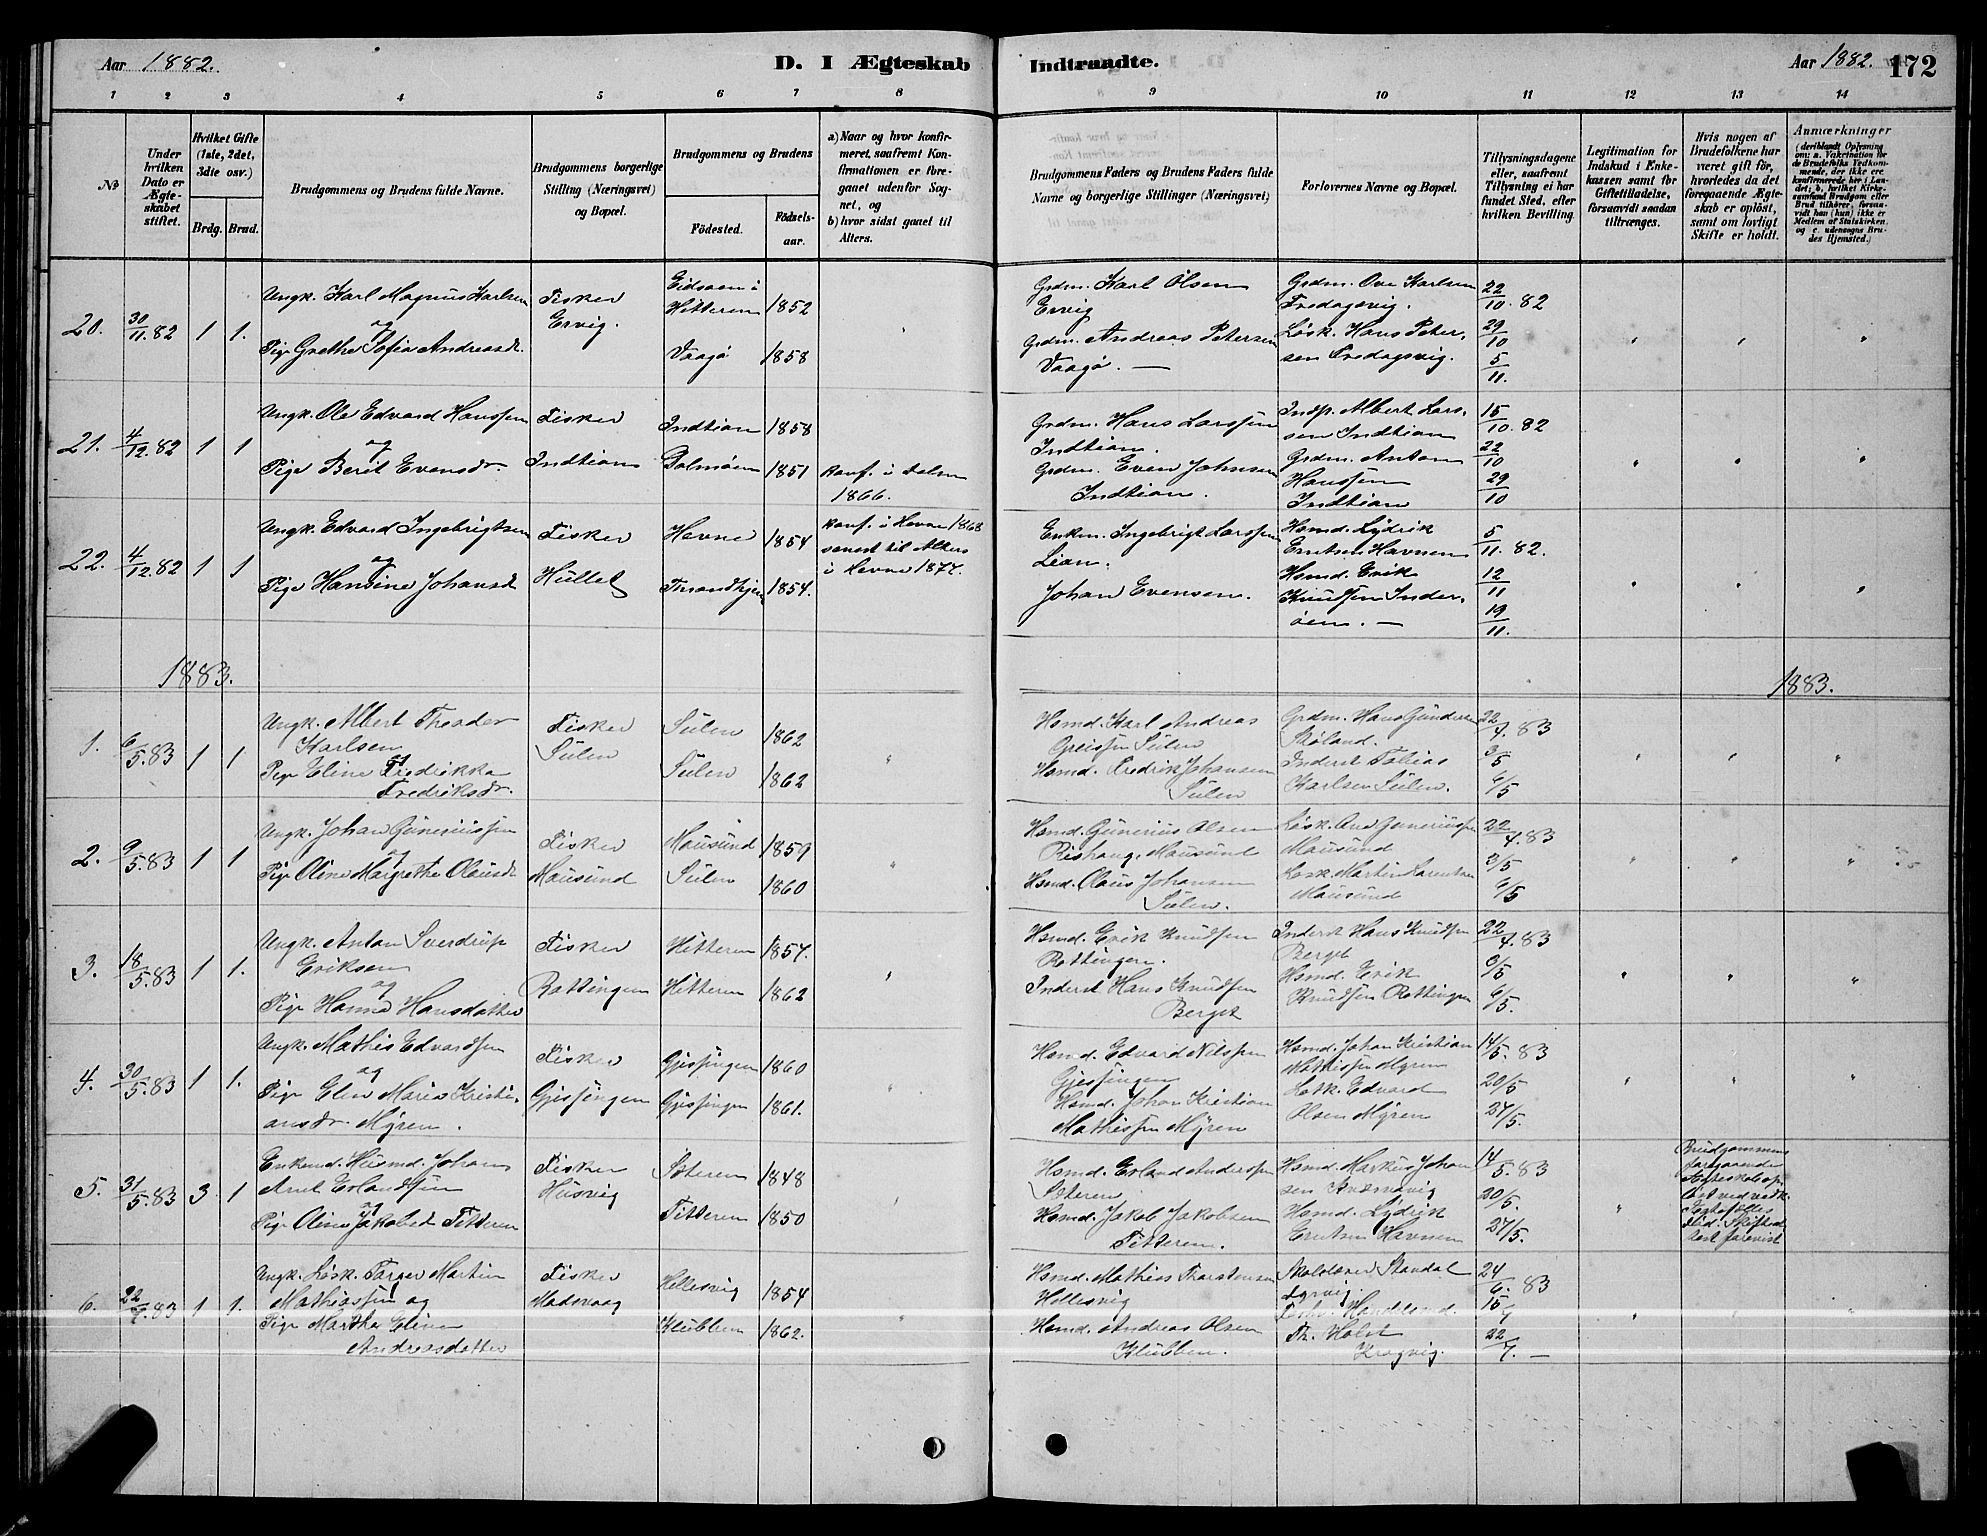 Aar 1882.
D. I Ægteskab Indtraadte.
Aar 1882. 172
1 2 3 4 5 6 7 8 8 9 10 11 12 13 14
No
Under hvilken Dato er Ægteskabet stiftet.
Hvilket Gifte (1ste, 2det, 3die osv.)
Brdg. Brud.
Brudgommens og Brudens fulde Navne.
Brudgommens borgerlige Stilling (Næringsvei) og Bopæl.
Brudgommens og Brudens
Födested. Födsels-aar.
a) Naar og hvor konfirmeret, saafremt Konfirmationen er foreganet udenfor Sognet, og
b) hvor sidst gaaet til Alters.
Brudgommens Faders og Brudens Faders fulde Navne og borgerlige Stillinger (Næringsvei)
Forlovernes Navne og Bopæl.
Tillysningsdagene eller, saafremt Tillysning ei har fundet Sted, efter hvilken Bevilling.
Legitimation for Indskud i Enkekassen samt for Giftetilladelse, forsaavidt saadan tiltrænges.
Hvis nogen af Brudefolkene har været gift för, hvorledes da det foregaaende Ægteskab er oplöst, samt om lovligt Skifte er holdt.
Anmærkninger
20. 30/11.82 1 1.
Ungk. Karl Magnus Karlsen
og
Pige Grethe Sofia Andreasd.
Fisker
Ervig.
Hitteren 1852
Vaagø 1858
Grdm. Karl Olsen
Ervig
Grdm. Andreas Petersen
Vaagø. —
Grdm. Ove Karlsen
Fredagsvig.
Løsk. Hans Peter-
sen Fredagsvig.
22/10.82
29/10
5/11.
21. 4/12.82 1 1
Ungk. Ole Edvard Hanssen
og
Pige Berit Evensdr.
Fisker
Indtian
Indtian 1858
Dolmøen 1851
Konf. i Dolm
1866.
Grdm. Hans Larssen
Indtian.
Grdm. Even Johnsen
Indtian.
Inds. Albert Lars-
sen Indtian
Grdm. Anton
Hanssen
Indtian
15/10.82
22/10
29/10
22. 4/12.82 1 1
Ungk. Edvard Ingebrigtsen
og
Pige Hansine Johansd
Fisker
Hullet
Hevne 1854
Throndhjem 1854.
Konf. i Hevne 1868
senest til Alters
i Hevne 1877.
Enkm. Ingebrigt Larssen
Lian.
Johan Evensen.
Hsmd. Lydrik
Erntsen Havnen
Hsmd. Erik
Knudsen Inder-
øen. —
5/11.82.
12/11
19/11.
1883. 1883.
1. 6/5.83 1 1
Ungk. Albert Theodor
Karlsen
Pige Eline Fredrikka
Fredriksdr.
Fisker
Sulen
Sulen 1862
Sulen 1862
Hsmd. Karl Andreas
Greissen Sulen
Hsmd. Fredrik Johansen
Sulen
Grdm. Hans Gundersen
Støland.
Inderst Tobias
Karlsen Sulen.
22/4.83
3/5
6/5
2. 9/5.83 1 1
Ungk. Johan Guneriussen
og
Pige Oline Margrethe Olausd
Fisker
Mausund
Mausund 1859
Sulen 1860
Hsmd. Gunerius Olsen
Rishaug, Mausund
Hsmd. Olaus Johansen
Sulen.
Løsk. Ove Gunerussen
Mausund
Løsk. Martin Larentsen
Mausund
22/4.83
3/5
6/5
3. 18/5.83 1 1.
Ungk. Anton Sverdrup
Eriksen
og
Pige Hanna Hansdatter
Fisker
Rottingen
Hitteren 1857.
Hitteren 1862
Hsmd. Erik Knudsen
Rottingen.
Inderst Hans Knudsen
Berget
Inderst Hans Knudsen
Berget
Hsmd. Erik
Knudsen Rottingen
22/4.83
3/5
6/5.
4. 30/5.83 1 1.
Ungk. Mathis Edvardsen
og
Pige Elen Maria Kristi-
ansdr. Myren.
Fisker
Gjessingen
Gjessingen 1860
Gjessingen 1861.
Hsmd. Edvard Nilssen
Gjessingen
Hsmd. Johan Kristian
Mathissen Myren
Hsmd. Johan Kristian
Mathissen Myren
Løsk. Edvard
Olsen Myren
14/5.83
20/5
27/5.
5. 31/5.83 3. 1
Enkemd. Husmd. Johan
Arnt Erlandsen
og
Pige Oline Jakobsd Titteren
Fisker
Husvig
Sæteren 1848
Titteren 1850
Hsmd. Erland Andersen
Sæteren
Hsmd. Jakob Jakobsen
Titteren.
Hsmd. Markus Johan
sen
Hsmd. Lydrik
Erntsen Havnen
14/5.83
20/5.
27/5.
Brudgommens
foregaaende
Ægteskab op-
løst ved
6. 22/7.83 1 1.
Ungk. Løsk. Torger Martin
Mathiassen og
Pige Martha Eline
Andreasdatter
Fisker
Madsvaag
Hellesvig 1854
Klubben 1862.
Hsmd. Mathias Thorstensen
Hellesvig
Hsmd. Andreas Olsen
Klubben.
Skolelærer Standal
Th. Holst
Kragvig.
24/6.83
15/7
22/7. —